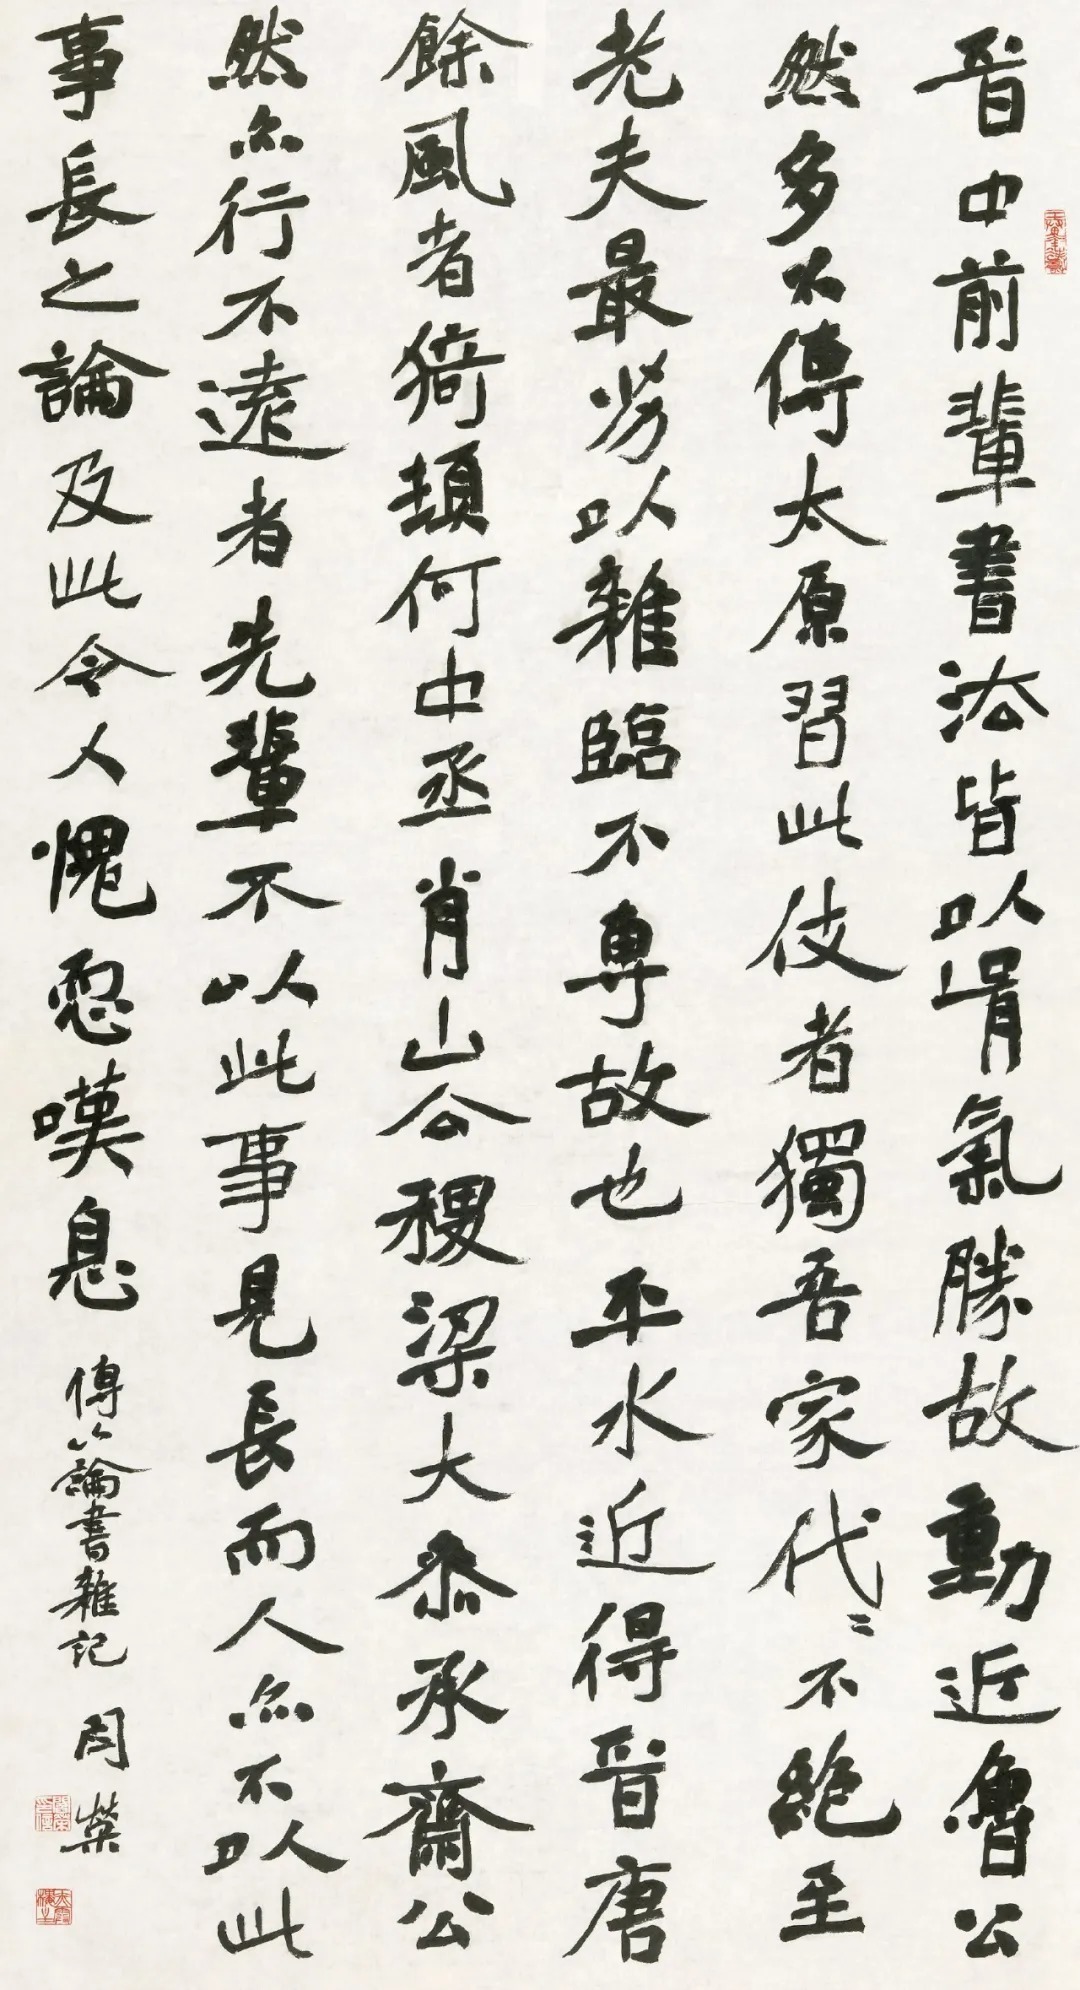 晉中前輩書法皆以骨氣勝故動近魯公
然多不傳太原習此伎者獨吾家代〻不絕至
老夫最劣以雜臨不專故也平水近得晉唐
餘風者猗頓何中丞肖山公稷梁大叅承齋公
然亦行不遠者先輩不以此事見長而人亦不以此
事長之論及此令人愧恧嘆息
傅山論書雜記